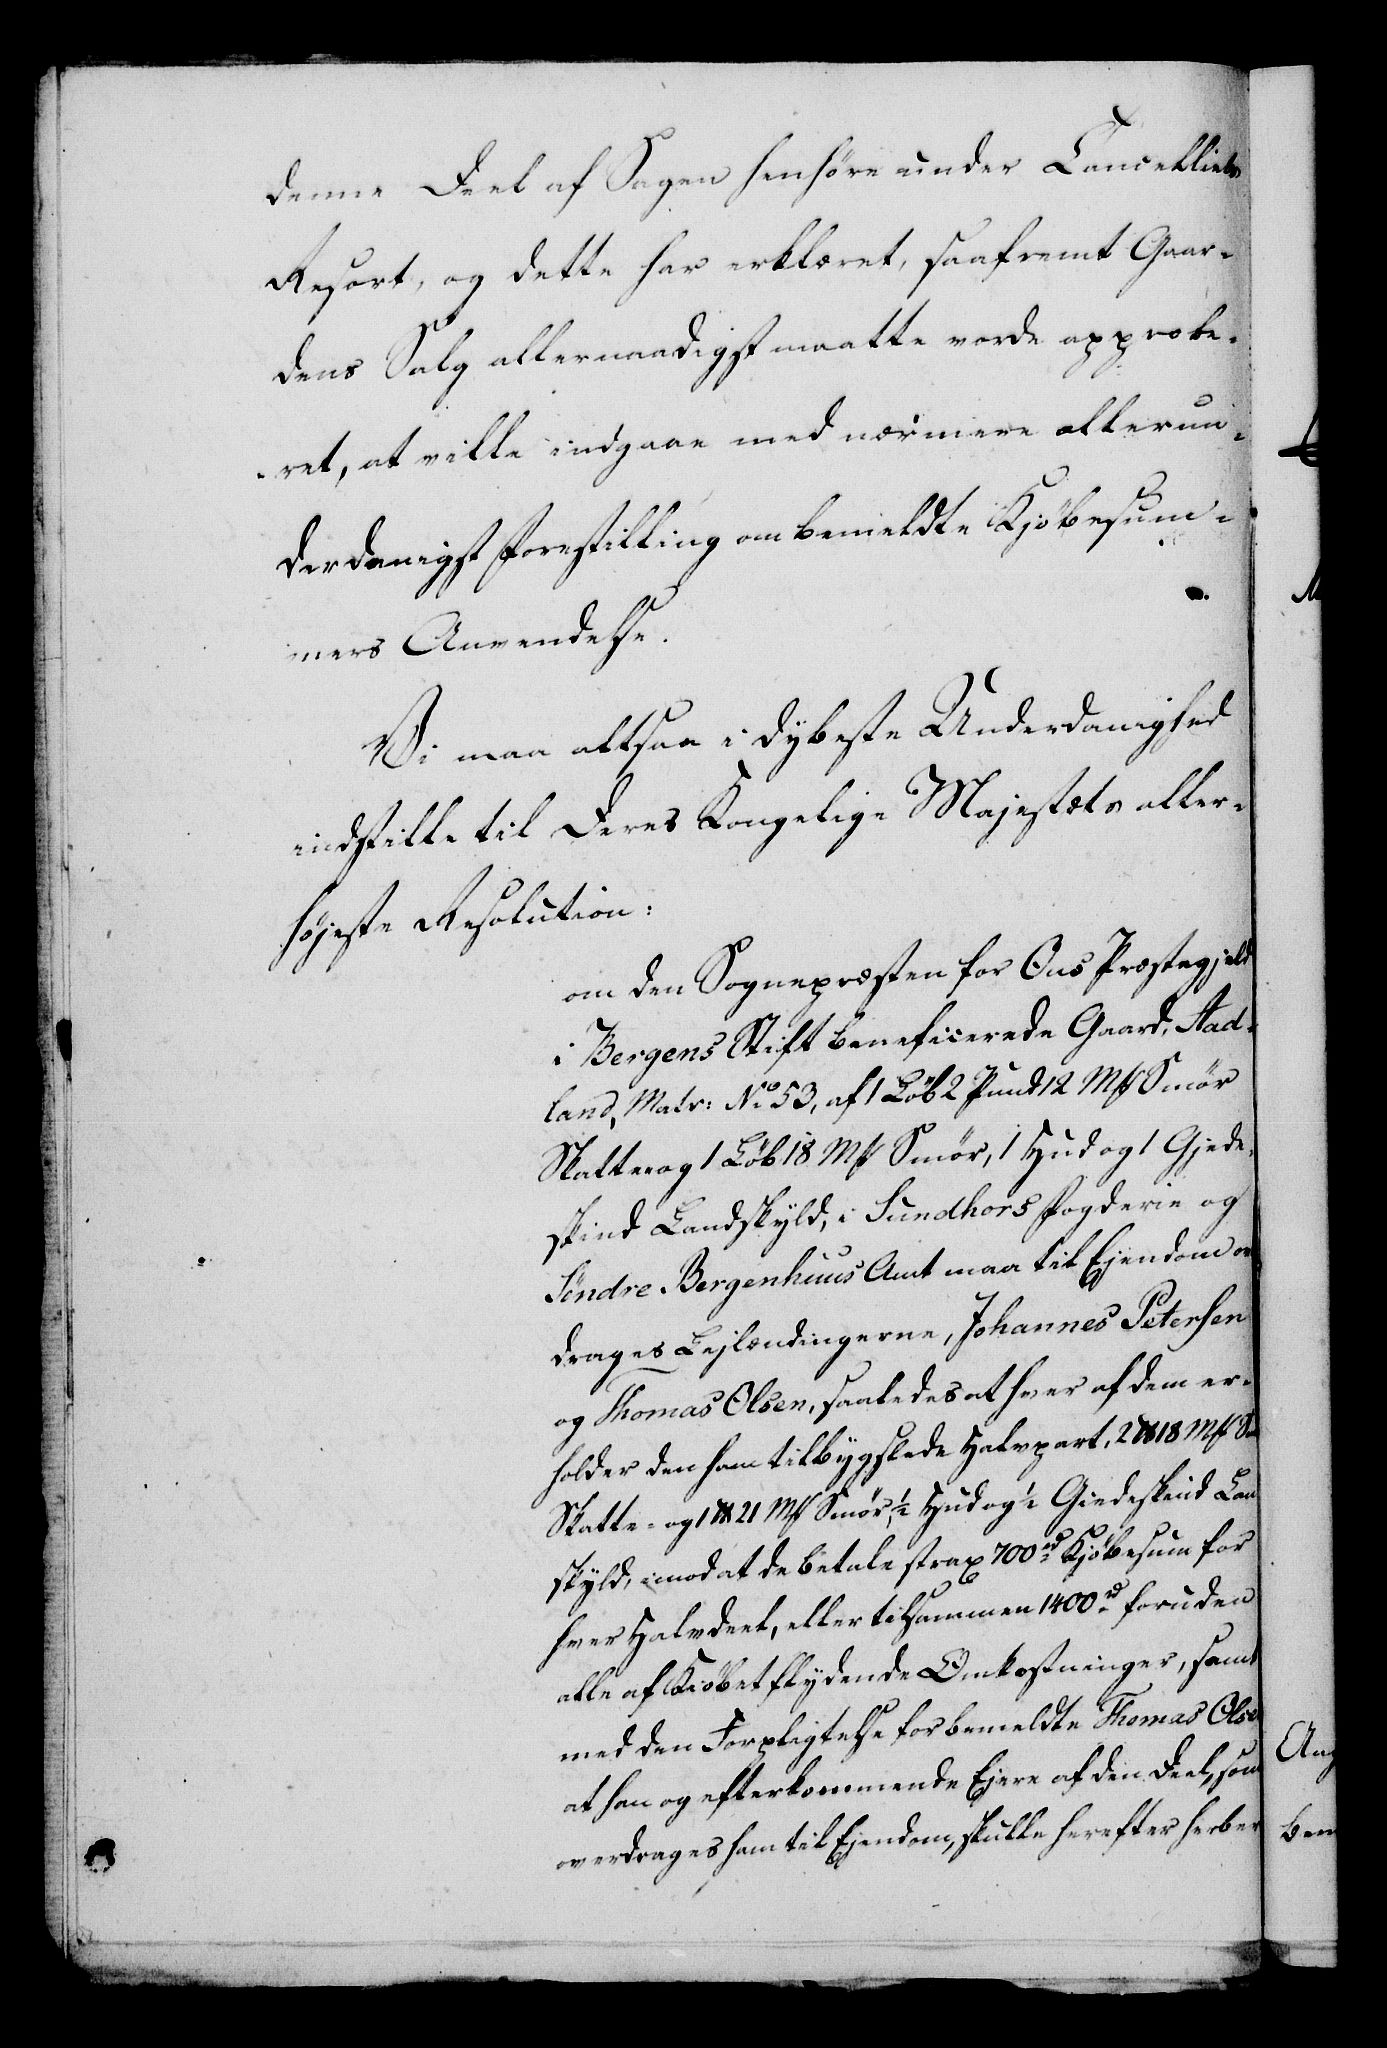 denne Deel af Sagen henhöre under Cancelliets
Resort, og dette har erklæret, saafremt Gaar-
dens Salg allernaadigst maatte vorde approbe-
ret, at ville indgaae med nærmere allerun-
derdanigst Forestilling om bemeldte Kjöbesum-
mers Anvendelse.
Vi maa altsaa i dybeste Underdanighed
indstille til Deres Kongelige Majestæts aller-
höjeste Resolution:
om den Sognepræsten for Ous Præstegjeld
i Bergens Stift beneficerede Gaard, Aad-
land, Matr: No 53, af 1 Löb 2 Pund 12 Mk Smör
Skatte og 1 Löb 18 Mk Smör, 1 Hud og 1 Gjede-
skind Landskyld, i Sundhors Fogderie og
Söndre Bergenhuus Amt maa til Ejendom o
drages Lejlændingerne, Johannes Petersen
og Thomas Olsen, saaledes at hver af dem er-
holder den ham tilbygslede Halvpart, 2 ℔ 18 Mk S
Skatte- og 1 ℔ 21 Mk Smör, ½ Hud og ½ Giedeskind Lan
skyld, imod at de betale strax 700 rd Kjöbesum for
hver Halvdeel, eller tilsammen 1400 rd foruden
alle af Kiöbet flydende Omkostninger, samt
med den Forpligtelse for bemeldte Thomas Olse
at han og efterkommende Ejere af den Deel, som
overdrages ham til Ejendom, skulle herefter herber
Ang
bem